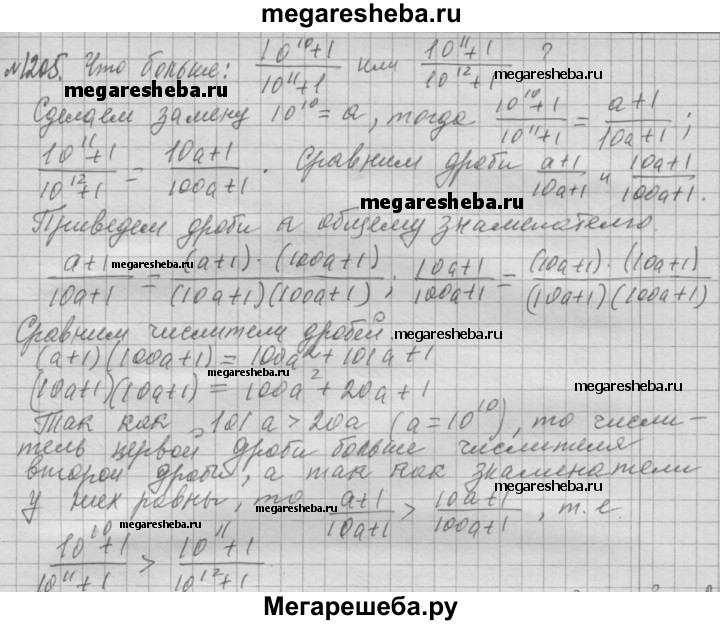 megaresheba.ru
№1205. Что больше: (10^10+1)/(10^11+1) или (10^11+1)/(10^12+1) ?
megaresheba.ru
megaresheba.ru
Сделаем замену 10^10 = a, тогда (10^10+1)/(10^11+1) = (a+1)/(10a+1);
(10^11+1)/(10^12+1) = (10a+1)/(100a+1). Сравним дроби (a+1)/(10a+1) и (10a+1)/(100a+1).
megaresheba.ru
Приведем дроби к общему знаменателю.
(a+1)/(10a+1) = ((a+1)·(100a+1))/((10a+1)(100a+1)); (10a+1)/(100a+1) = ((10a+1)·(10a+1))/((10a+1)(100a+1))
megaresheba.ru
megaresheba.ru
Сравним числители дробей.
megaresheba.ru
(a+1)(100a+1) = 100a²+101a+1
(10a+1)(10a+1) = 100a²+20a+1
megaresheba.ru
Так как 101a > 20a (a=10^10), то числи-
тель первой дроби больше числителя
megaresheba.ru
второй дроби, а так как знаменатели
у них равны, то (a+1)/(10a+1) > (10a+1)/(100a+1), т.е.
megaresheba.ru
megaresheba.ru
megaresheba.ru
(10^10+1)/(10^11+1) > (10^11+1)/(10^12+1)
Мегарешеба.ру